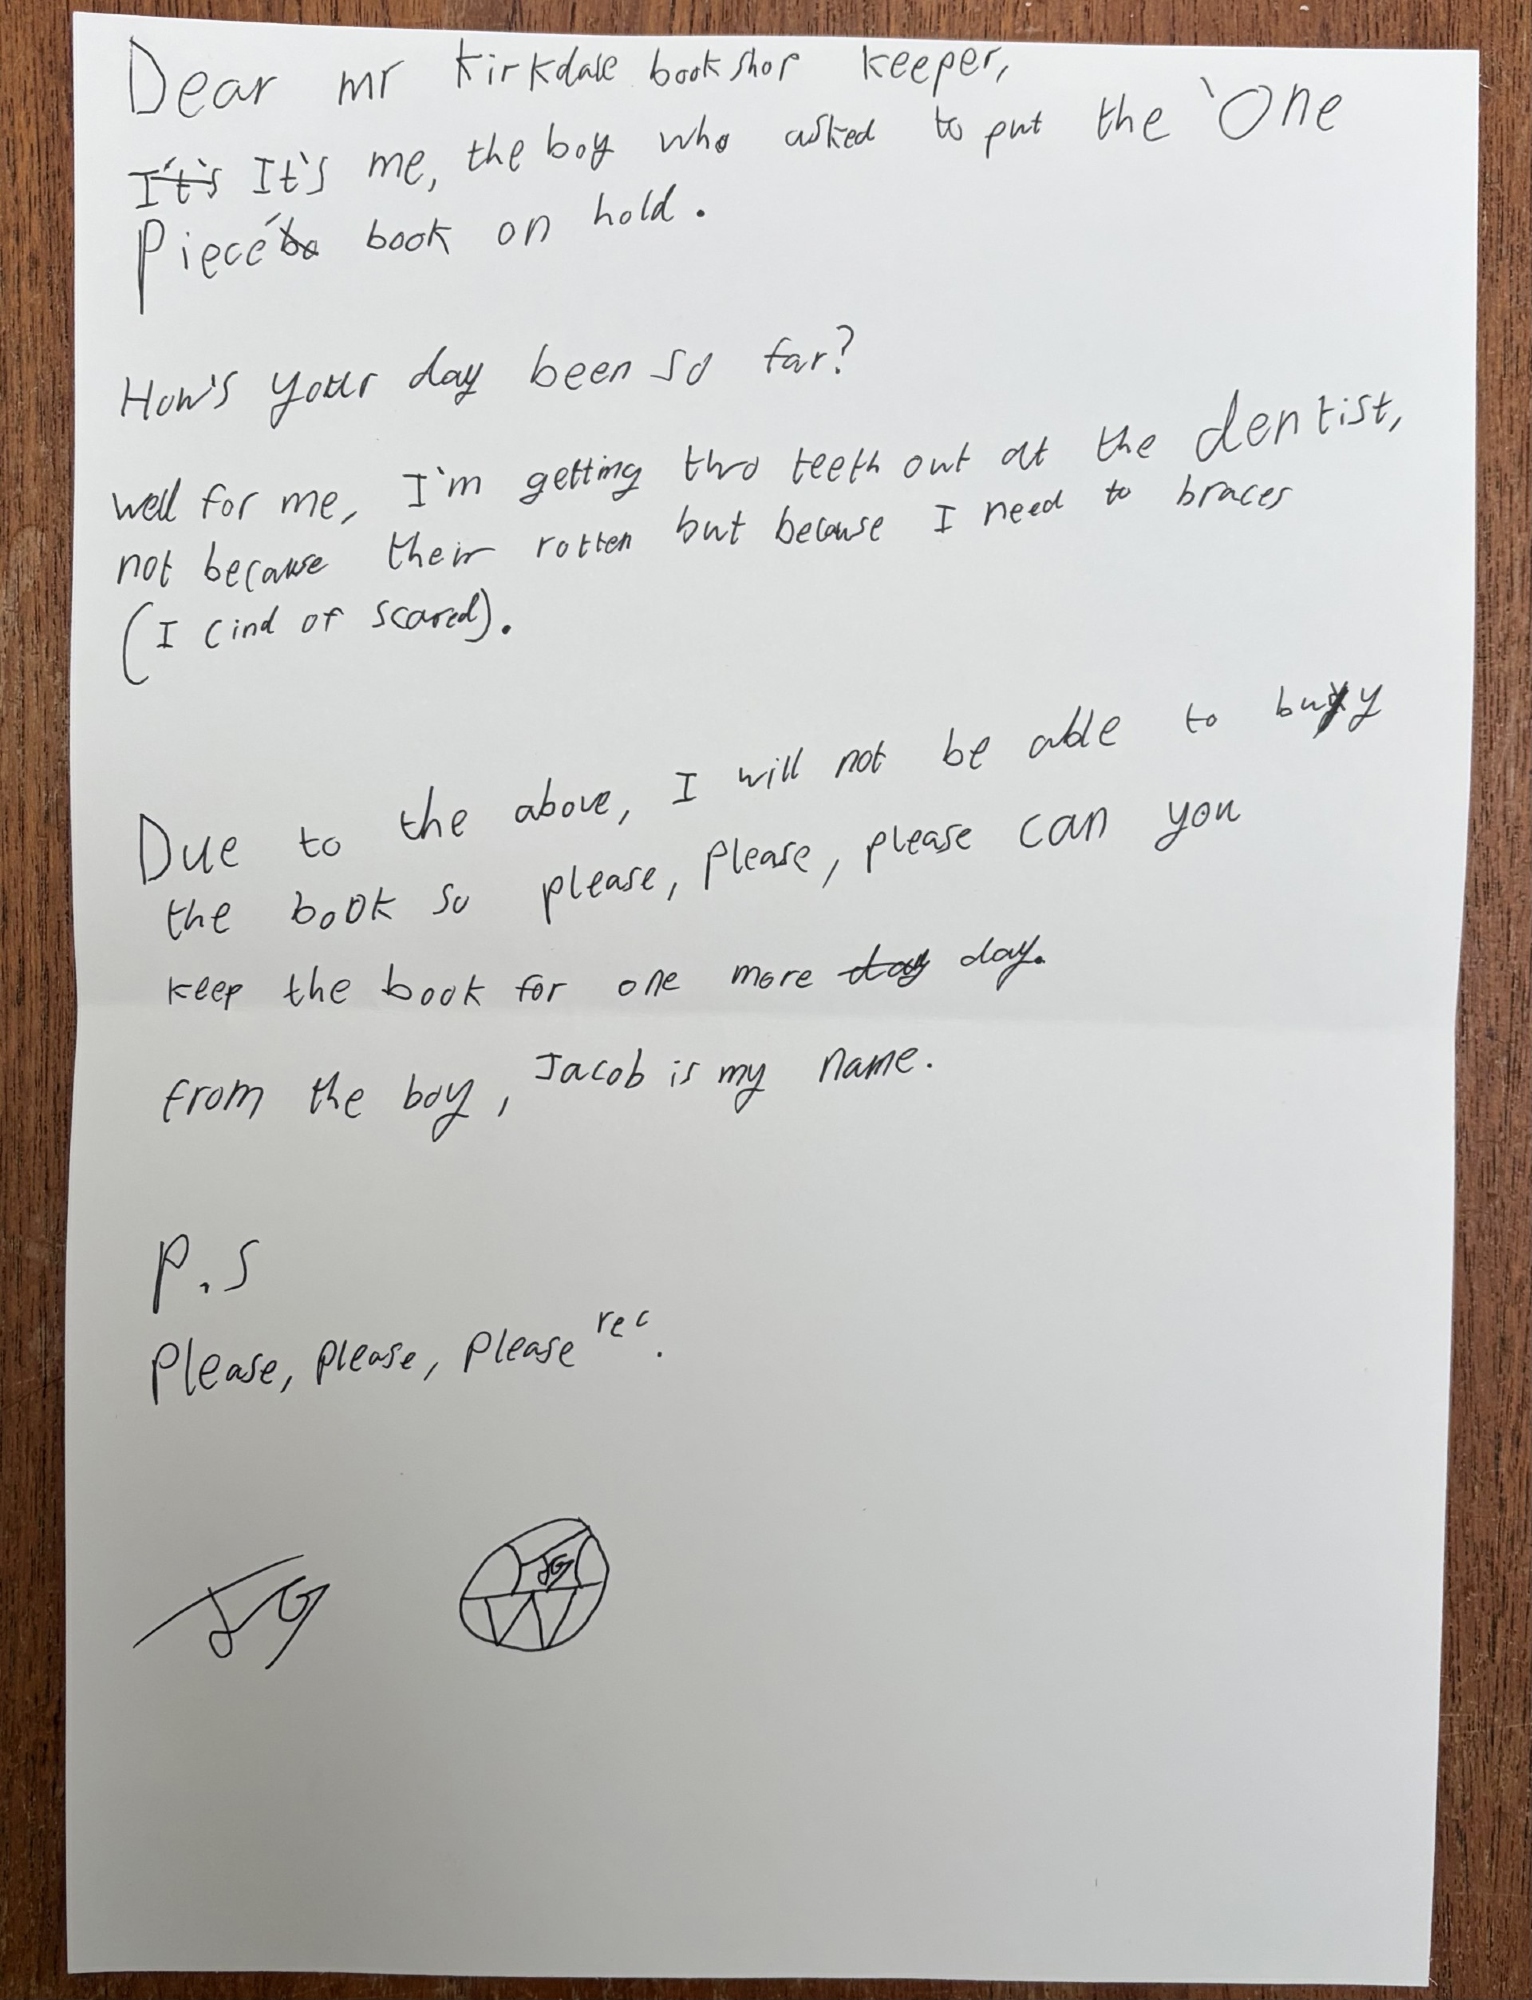 Dear mr Kirkdale bookshop keeper,
It's It's me, the boy who asked to put the 'One
Piece' bo book on hold.
How's your day been so far?
well for me, I'm getting two teeth out at the dentist,
not because their rotten but because I need to braces
(I cind of scared).
Due to the above, I will not be able to buy
the book so please, please, please can you
keep the book for one more day day.
from the boy, Jacob is my name.
P.S
Please, please, please rec.
JG JG